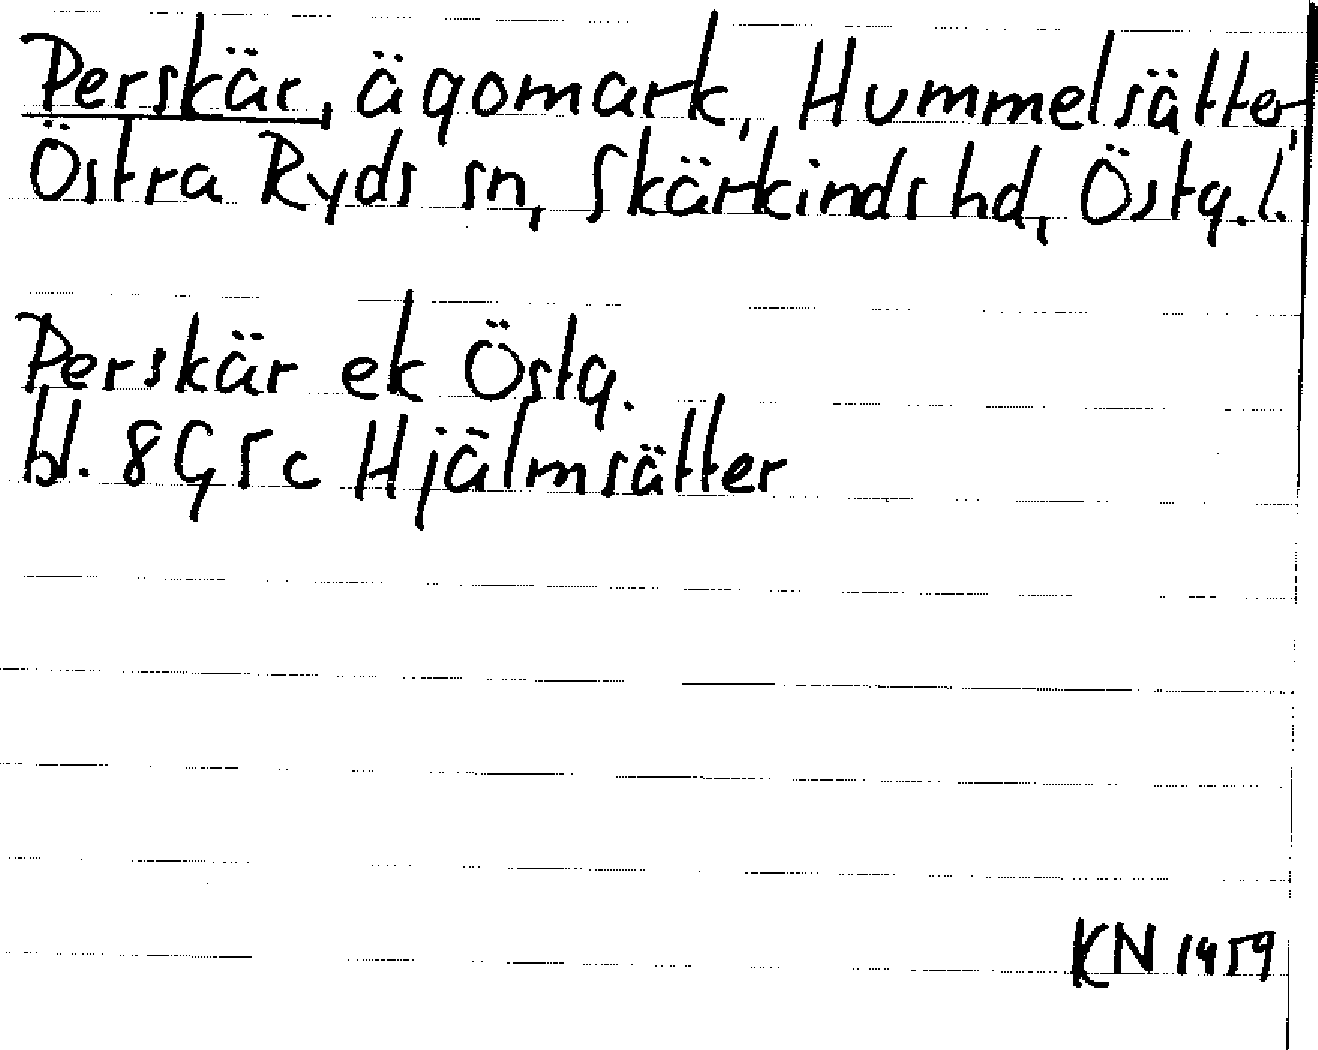 Perskär, ägomark, Hummelsätter,
Östra Ryds sn, Skärkinds hd, Östg. l.
Perskär ek Östg.
bl. 8G 5c Hjälmsätter
KN 1959